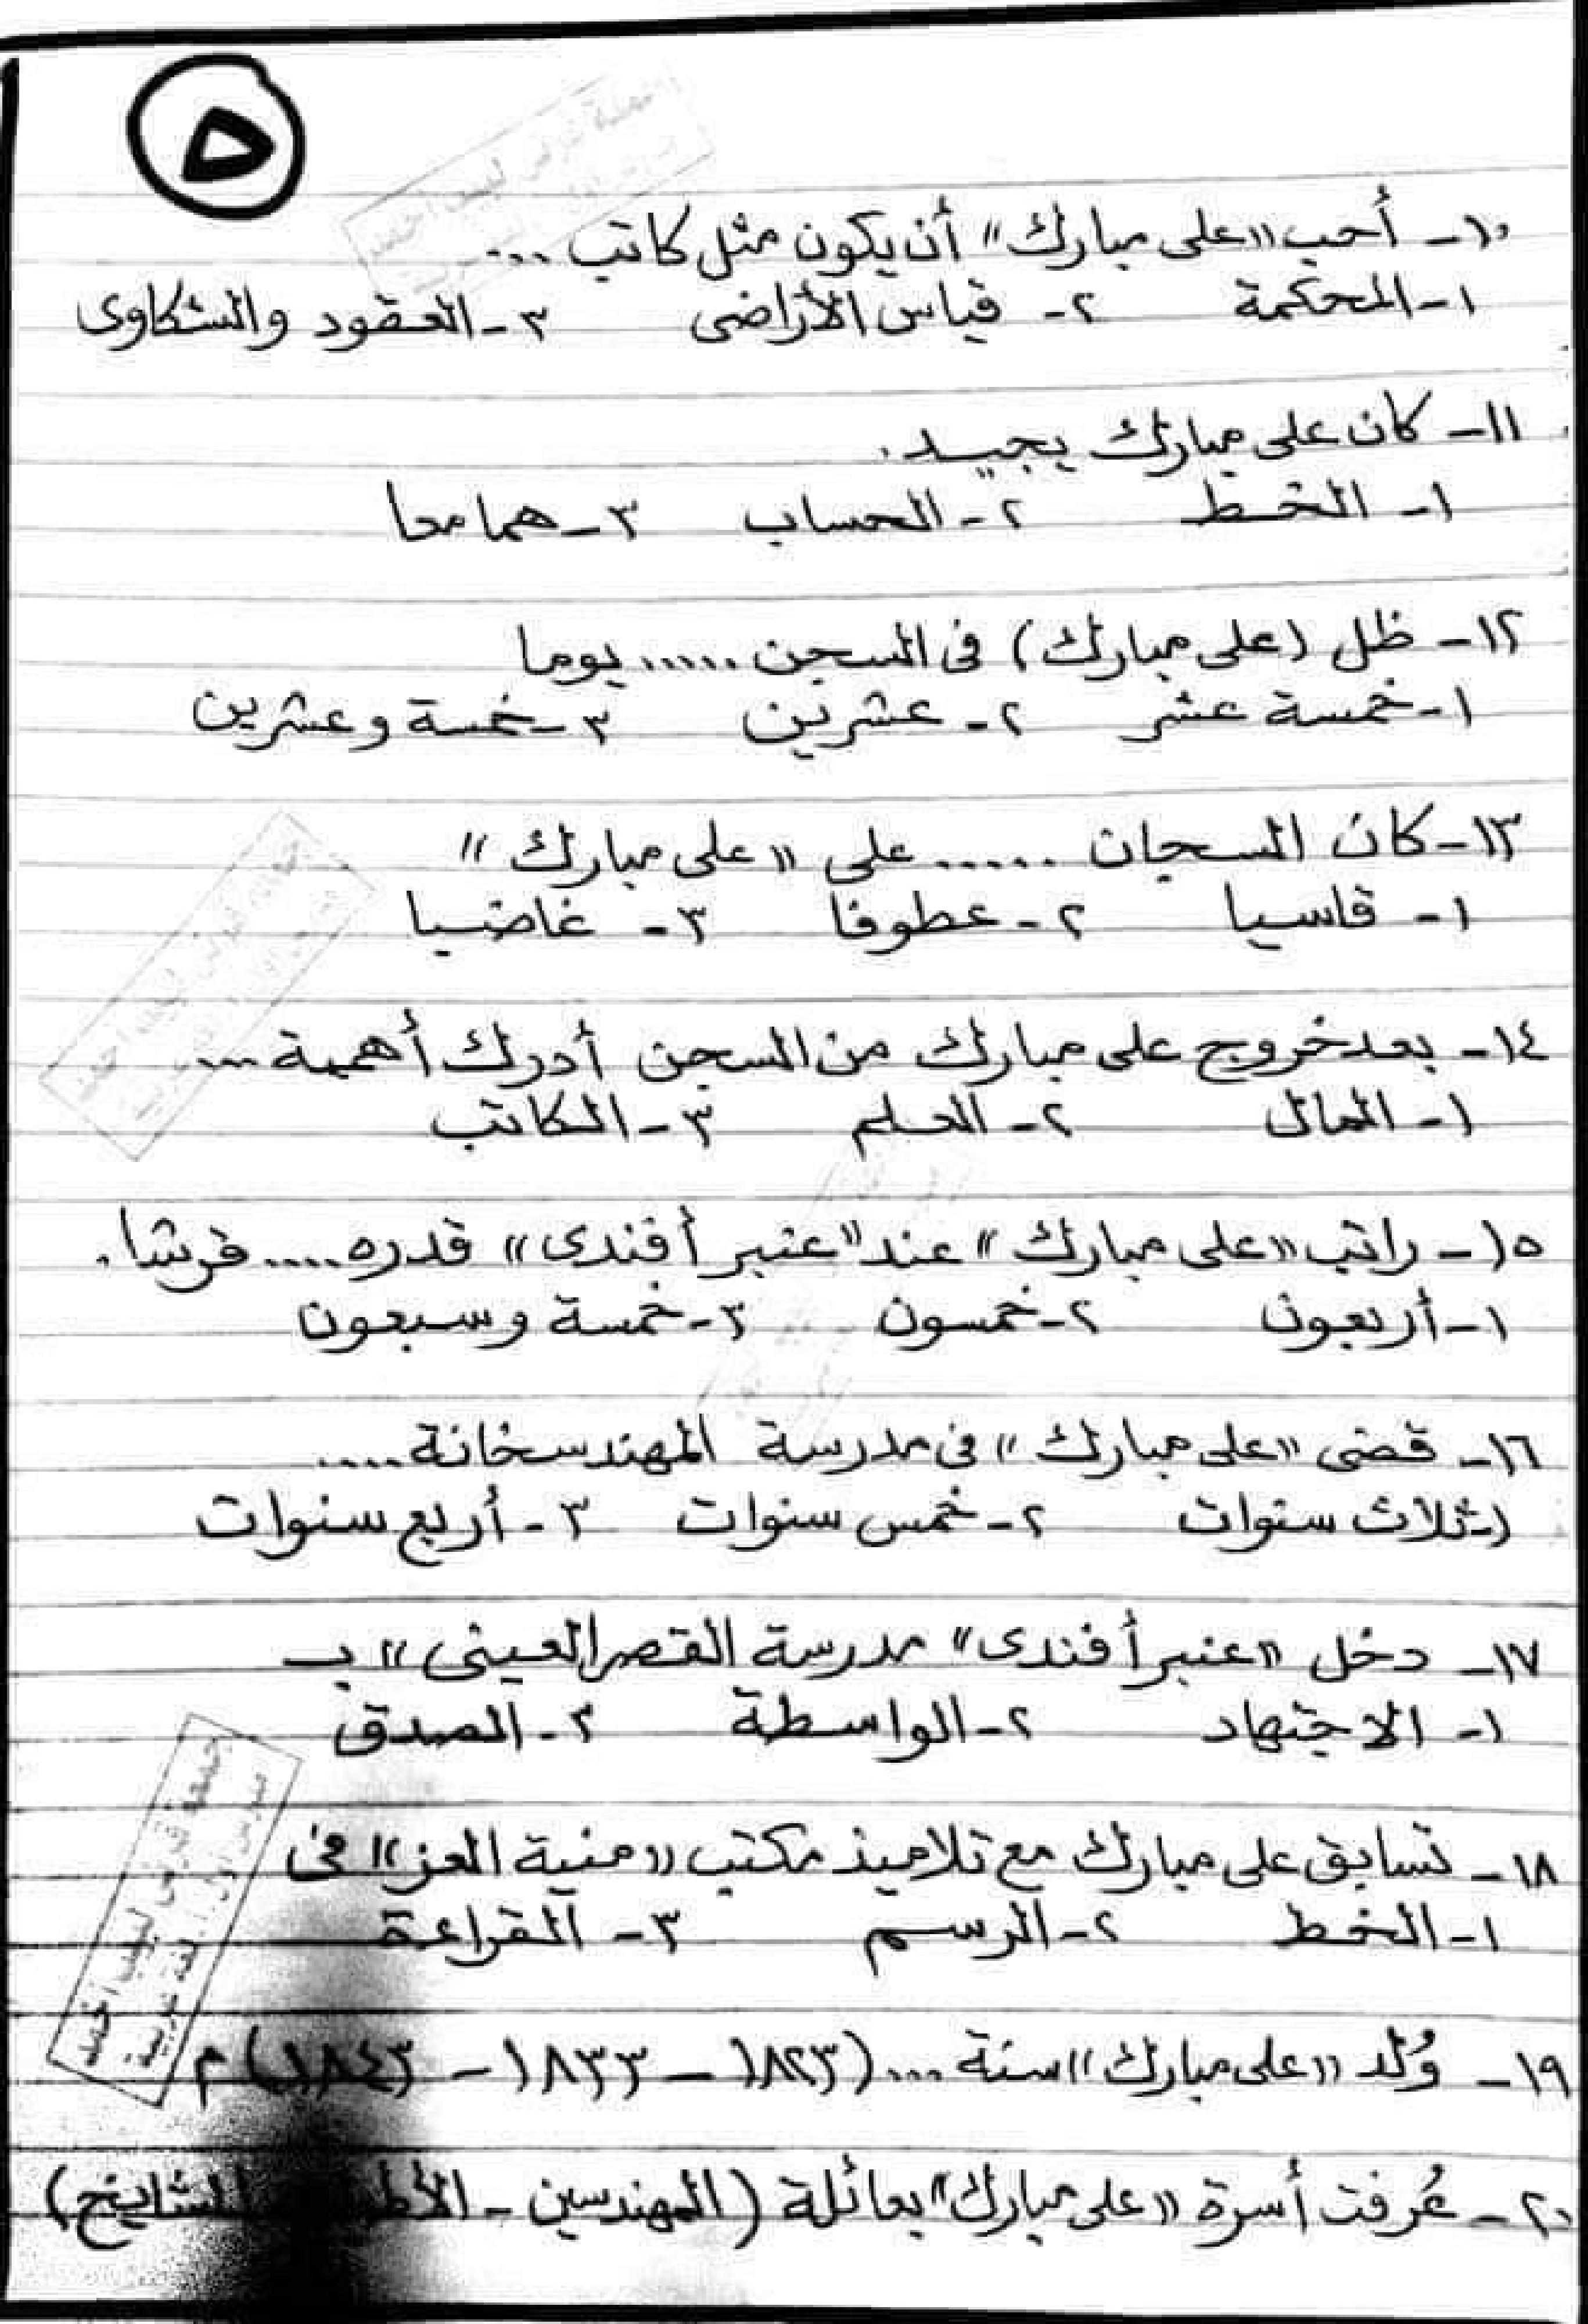 ٥
١٠- أحب «على مبارك» أن يكون مثل كاتب ...
١- المحكمة ٢- قياس الأراضى ٣- العقود والشكاوى
١١- كان على مبارك يجيد.
١- الخط ٢- الحساب ٣- هما معا
١٢- ظل (على مبارك) فى السجن ..... يوما
١- خمسة عشر ٢- عشرين ٣- خمسة وعشرين
١٣- كان السجان ..... على «على مبارك»
١- قاسيا ٢- عطوفا ٣- غاضبا
١٤- بعد خروج على مبارك من السجن أدرك أهمية ...
١- المال ٢- العلم ٣- الكاتب
١٥- راتب «على مبارك» عند "عنبر أفندى» قدره .... قرشا.
١- أربعون ٢- خمسون ٣- خمسة وسبعون
١٦- قضى «على مبارك» فى مدرسة المهندسخانة ....
١- ثلاث سنوات ٢- خمس سنوات ٣- أربع سنوات
١٧- دخل «عنبر أفندى» مدرسة القصر العينى» بـ
١- الاجتهاد ٢- الواسطة ٣- الصدق
١٨- تسابق على مبارك مع تلاميذ مكتب «منية العز» فى
١- الخط ٢- الرسم ٣- القراءة
١٩- وُلد «على مبارك» سنة ... (١٨٢٣ – ١٨٣٣ – ١٨٤٣) م
٢٠- عُرفت أسرة «على مبارك» بعائلة (المهندسين - المشايخ)